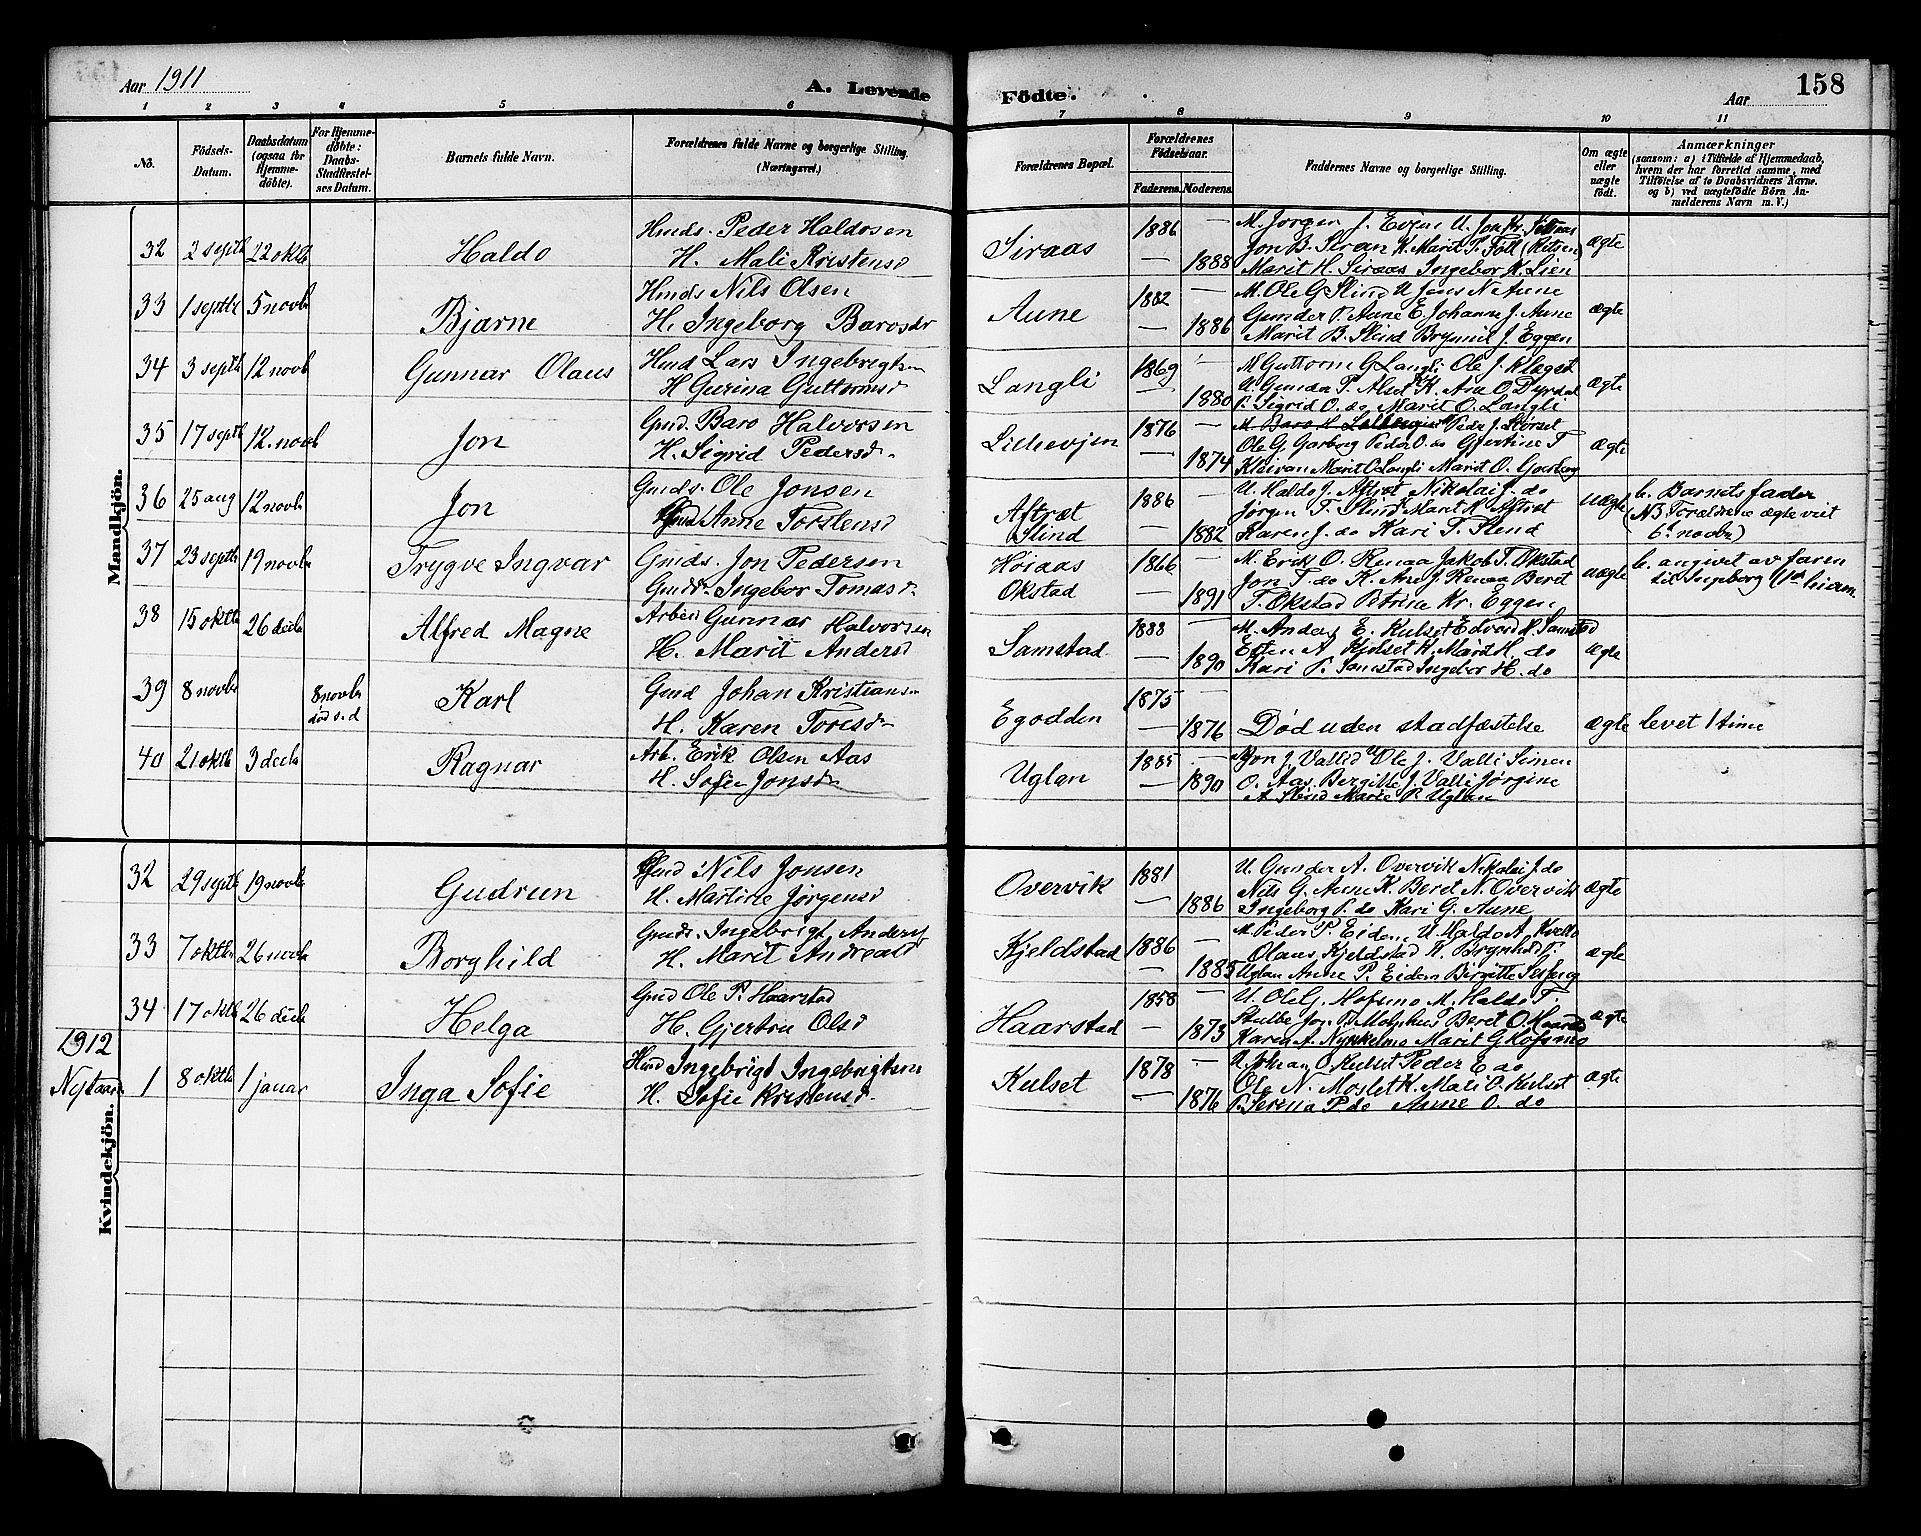 Aar 1911
A. Levende Fødte.
Aar 158
1 2 3 4 5 6 7 8 9 10 11
No. Fødsels-Datum. Daabsdatum (ogsaa for Hjemmedøbte). For Hjemmedøbte: Daabs-Stadfæstelses Datum. Barnets fulde Navn. Forældrenes fulde Navne og borgerlige Stilling. (Næringsvei.) Forældrenes Bopæl. Forældrenes Fødselsaar. Faderens. Moderens. Faddernes Navne og borgerlige Stilling. Om ægte eller uægte født. Anmærkninger (saasom: a) i Tilfælde af Hjemmedaab, hvem der har forrettet samme, med Tilføielse af to Daabsvidners Navne. og b) ved uægtefødte Børn Anmelderens Navn m. V.)
Mandkjøn.
32 2 septb 22 oktb Haldo Hmds. Peder Haldosen Siraas 1886 — M. Jorgen J. Evjen U. Jon Kr.
H. Mali Kristensd — 1888 Jon B. Siraas K. Marit P. ægte
Marit H. Siraas Ingebor K. Lien
33 1 septbr 5 novbr Bjarne Hmds Nils Olsen Aune 1882 — M. Ole G Slind U Jens N Aune
H. Ingeborg Barosdr — 1886 Gunder P. Aune E Johanne J. Aune ægte
Marit B. Slind Brynnil J. Eggen
34 3 septb 12 novb Gunnar Olaus Hmd Lars Ingebrigtsn Langli 1869 — M Guttorm G Langli Ole J.
H Gurina Guttormsd 1880 U. Gunder P. K. Ane O Dyrdal ægte
P. Sigrid O. do Marit O. Langli
35 17 septb 12. novb Jon Gmd. Baro Halvorsen Lillevjen 1876 — Peder J.
H. Sigrid Pedersd. — 1874 Ole G. Garberg Peder O. do Gjertine T ægte
Marit O Langli Marit O.
36 25 aug 12 novb Jon Gmds. Ole Jonsen Aftræt 1886 — U. Haldo J. Aftræt Nikolai J. do uægte b. Barnets fader
Anne Torstensd Slind — 1882 Jørgen T. Slind Marit K Aftræt (NB Forældrene ægte viet
Karen J. do Kari T. Slind 6t novbr)
37 23 septb 19 novb Trygve Ingvar Gmds. Jon Pedersen Høiaas 1866 — M. Erik O. Renaa Jakob T. Økstad uægte b. angivet av faren
Ingebor Tomasd. Økstad — 1891 Jon T. do K. Ane J. Renaa Beret til Ingeborg
T. Økstad Petrina Kr. Eggen
38 15 oktb 26 decb Alfred Magne Arbeid Gunnar Halvorsen Samstad 1888 — M. Anders E. Kulset Edvard K. Samstad
H. Marit Andersd — 1890 Esten A Kjølset K. Marit H. do ægte
Kari P. Samstad Ingebor H. do
39 8 novb 8 novb død s. d Karl Gmd Johan Kristiansn Egodden 1875 —
H. Karen Toresd. — 1876 Død uden stadfæstelse ægte levet 1 time
40 21 oktb 3 decb Ragnar Arb. Erik Olsen Aas Uglan 1885 — Jon J. Vallid U Ole J. Valli Simen
H. Sofie Jonsd. — 1890 O. Aas. Bergitte J. Valli Jørgine
A Slind Marie P. Uglan
Kvindekjøn.
32 29 septb 19 novb Gudrun Gmd Nils Jonsen Overvik 1881 — U. Gunder A. Overvik Nikolai J. do
H. Martine Jørgensd — 1886 Nils G. Aune K. Beret N. Overvik ægte
Ingeborg P. do Kari G. Aune
33 7 oktbr 26 novb Borghild Gmds. Ingebrigt Anders Kjeldstad 1886 — M. Peder P. Eidem U Haldo A. Kvello
H. Marit Andreasd — 1885 Olaus Kjeldstad K. Brynhild P. ægte
Uglan Anne P. Eidem Birgitte
34 17 oktb 26 decb Helga Gmd Ole P. Haarstad Haarstad 1858 — U. Ole G. Mofsmo M. Haldo T.
H. Gjertru Olsd — 1873 Stulbo Beret O. Haarstad ægte
Karen A. Marit G
1912
Nytaar 1 8 oktb 1 januar Inga Sofie Hmd Ingebrigt Ingebrigtsen Kulset 1878 — U. Johan O Kulset Peder E do
H. Sofie Kristensd. — 1876 Ole N. Moslet K. Mali O. Kulset ægte
P. Serina P. do Anne O. do